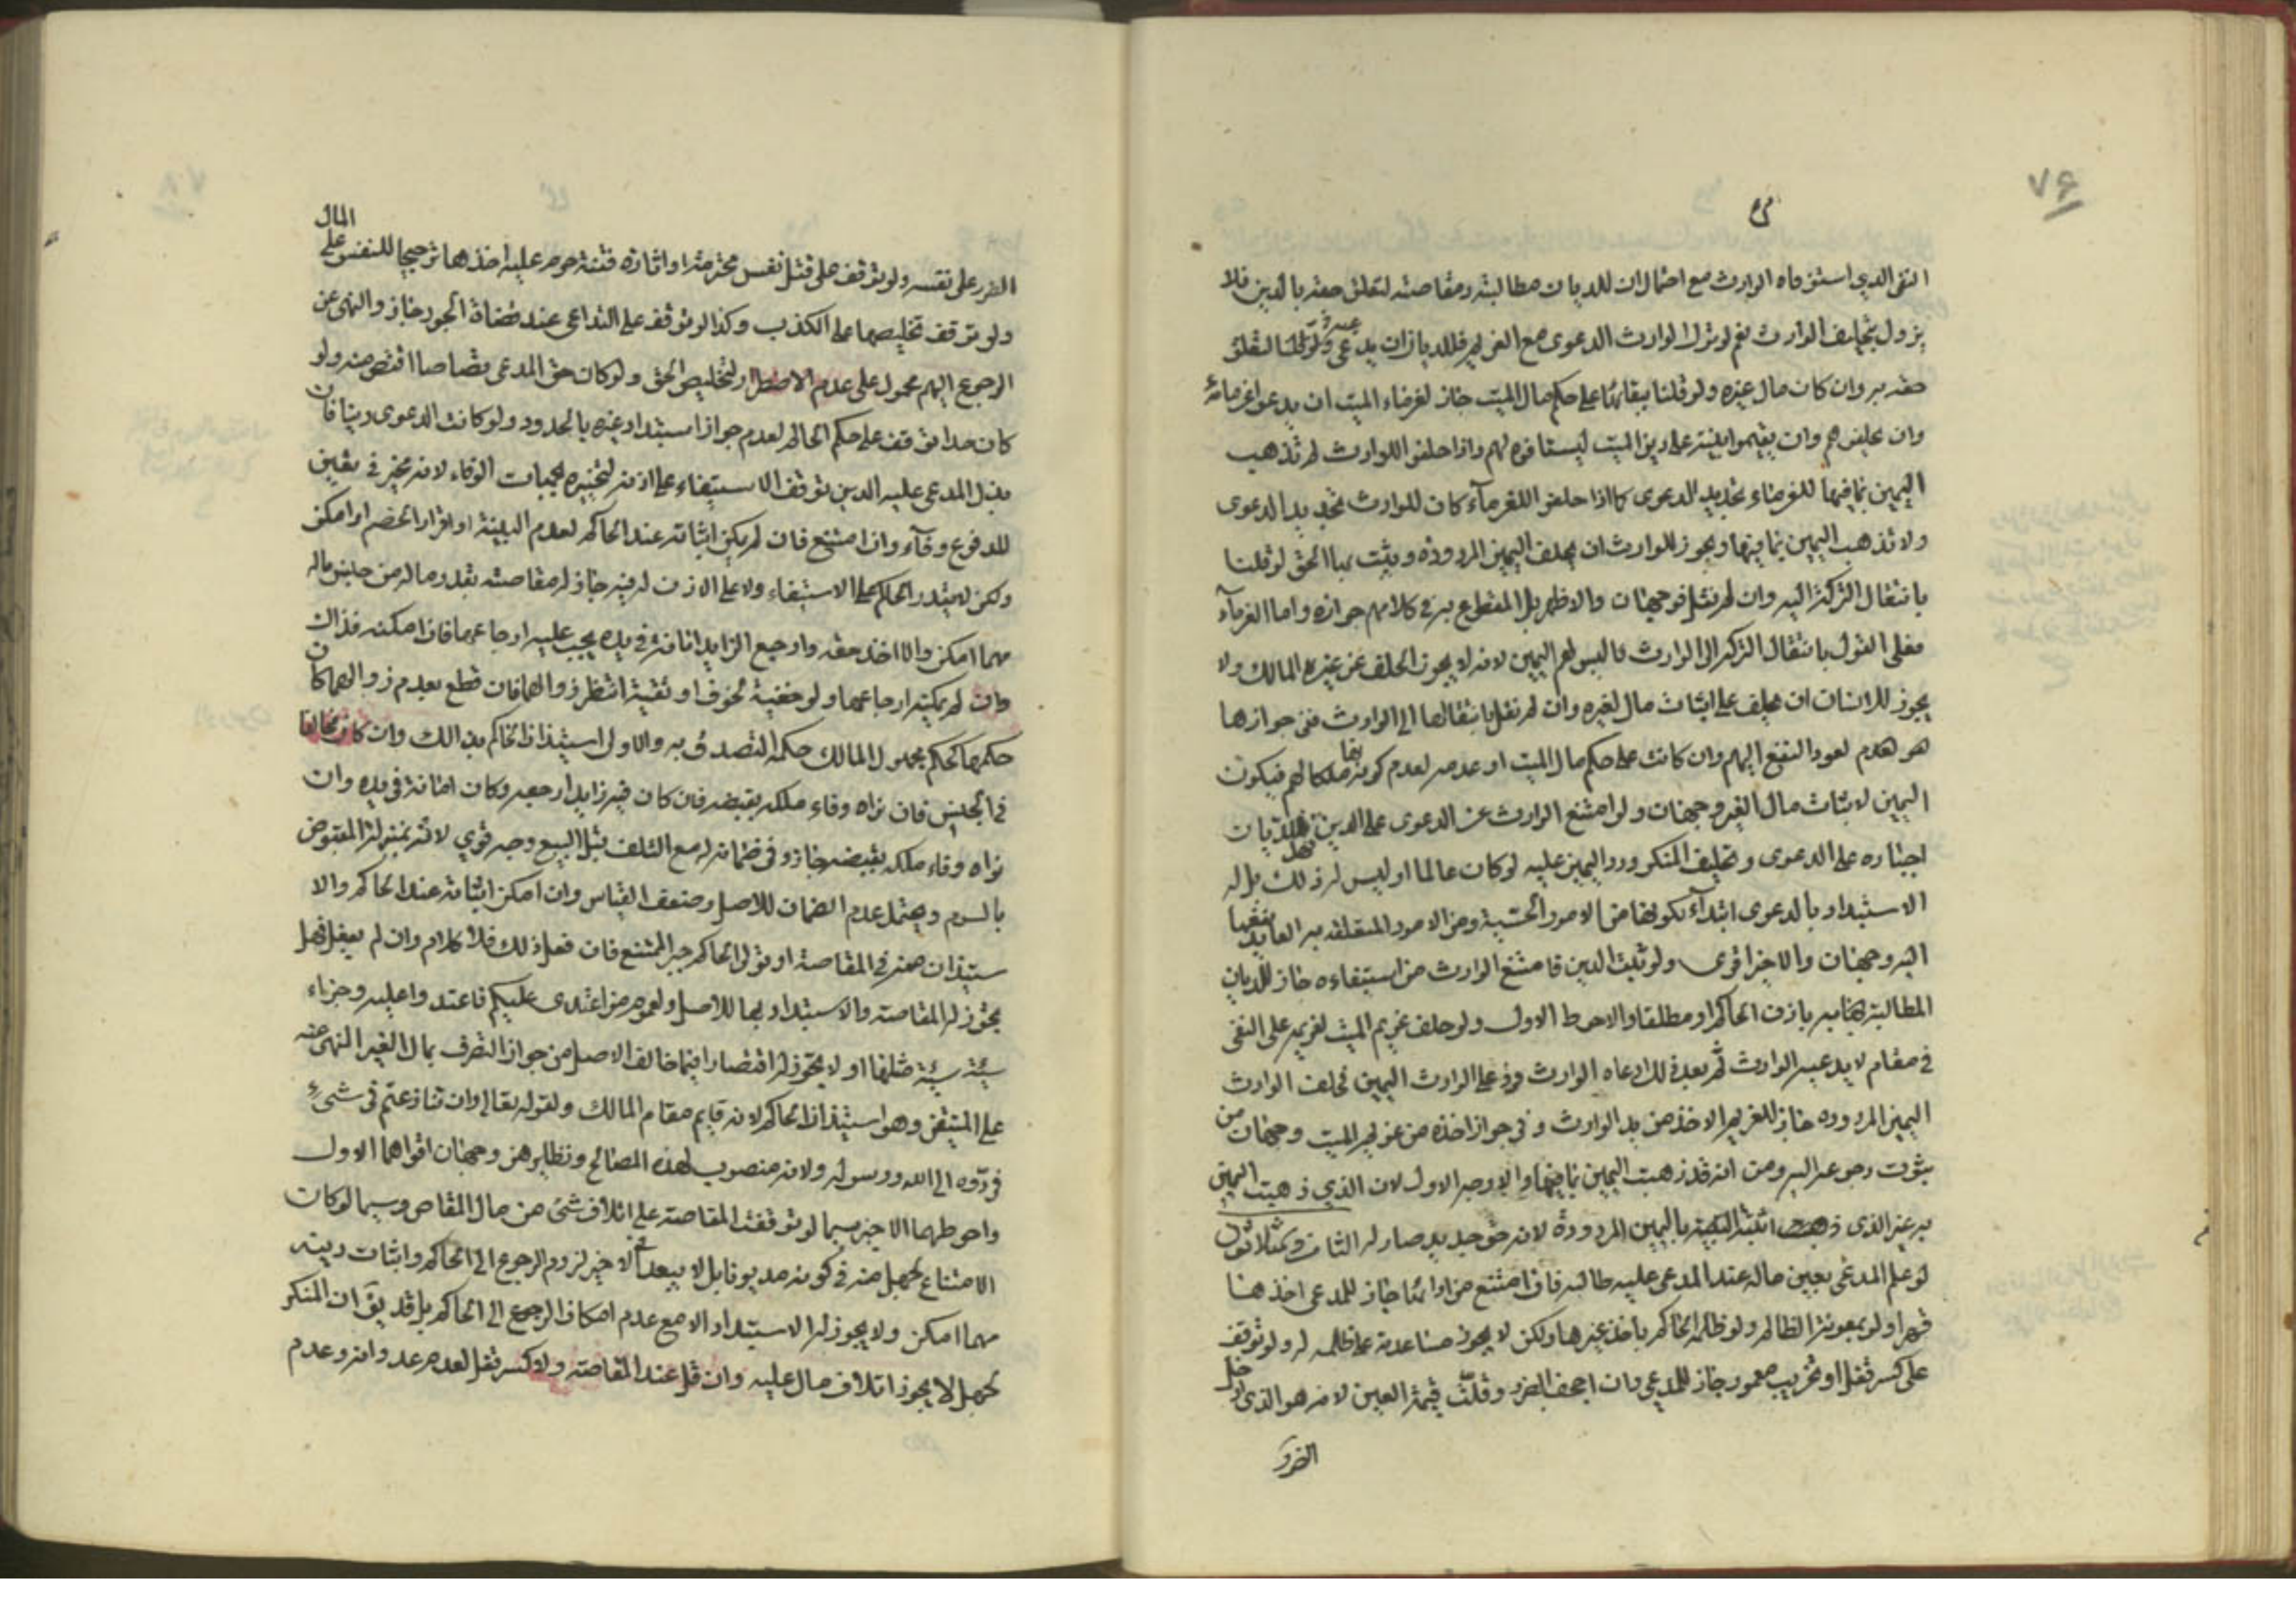 ٧۶
النفى الذي استوفاه الوارث مع احتمال ان للديان مطالبته ومقاصته لتعلق حقه بالدين فلا
يزول بتحليف الوارث نعم لو ترك الوارث الدعوى مع الغريم فللديان ان يدعى عليه لتعلق
حقه به وان كان مال غيره ولو قلنا ببقائها على حكم مال الميت جاز لغرماء الميت ان يدعوا غرمائه
وان يحلفوهم وان يقيموا بينة على دين الميت ليستافوه لهم واذا حلفوا للوارث لم تذهب
اليمين بما فيها للغرماء تجديد الدعوى كما اذا حلفوا للغرماء كان للوارث تجديد الدعوى
ولا تذهب اليمين بما فيها ويجوز للوارث ان يحلف اليمين المردودة ويثبت بها الحق لو قلنا
بانتقال التركة اليه وان لم نقل فوجهان والاظهر بل المقطوع به في كلامهم جوازه واما الغرماء
فعلى القول بانتقال التركة الى الوارث فاليس لهم اليمين لانه لا يجوز الحلف عن غيره المالك ولا
يجوز للانسان ان يحلف على اثبات مال لغيره وان لم نقل بانتقالها الى الوارث ففى جوازها
هو هدم لعود النفع اليهم وان كانت على حكم مال الميت او عدمه لعدم كونها ملكا لهم فيكون
اليمين لاثبات مال الغير وجهان ولو امتنع الوارث عن الدعوى على الدين فهل للديان
اجباره على الدعوى وتحليف المنكر ورد اليمين عليه لو كان عالما او ليس له ذلك بل له
الاستبداد بالدعوى ابتداء لكونها من الامور الحسبية ومن الامور المتعلقة به العايد نفعها
اليه وجهان والاخير اقوى ولو ثبت الدين فامتنع الوارث من استيفاءه جاز للديان
المطالبة به باذن الحاكم او مطلقا والاحوط الاول ولو حلف غريم الميت لغريمه على النفى
في مقام لا يدعيه الوارث ثم بعد ذلك ادعاه الوارث ورد على الوارث اليمين فحلف الوارث
اليمين المردوده جاز للغريم الاخذ من يد الوارث وفي جواز اخذه من غريم الميت وجهان من
ثبوت رجوعه اليه ومن انه قد ذهبت اليمين بما فيها والاوجه الاول لان الذي ذهبت اليمين
به غير الذي اثبته باليمين المردودة لانه حق جديد صار له
لو علم المدعى بعين ماله عند المدعى عليه طالبه فان امتنع من ادائها جاز للمدعى اخذها
قهرا ولو بمعونة الظالم ولو ظلمه الحاكم باخذ غيرها ولكن لا يجوز مساعدته على ظلمه له ولو توقف
على كسر قفل او تخريب معمور جاز للمدعى وان اجحف الضرر وقلت قيمة العين لانه هو الذي ادخل
الضرر
الضرر على نفسه ولو توقف على قتل نفس محترمة او اثارة فتنة حرم عليه اخذها ترجيحا للنفس على المال
ولو توقف تخليصها على الكذب وكذا لو توقف على التداعى عند قضاة الجور جاز والنهى عن
الرجوع اليهم محمول على عدم الاضطرار لتخليص الحق ولو كان حق المدعى قصاصا اقتص منه ولو
كان حدا توقف على حكم الحاكم لعدم جواز استبداد غيره بالحدود ولو كانت الدعوى دينا فان
بذل المدعى عليه الدين توقف الاستيفاء على اذنه لتخييره لجهات الوفاء لانه مخير في تعيين
المدفوع وفآء وان امتنع فان لم يكن اثباته عند الحاكم لعدم البينة او اقرار الخصم او امكن
ولكن لا يقدر الحاكم على الاستيفاء ولا على الاذن له فيه جاز له مقاصته بقدر ماله من جنس ماله
مهما امكن والا اخذ حقه وارجع الزايد امانة في يده يجب عليه ارجاعها فان امكنه فذاك
وان لم يمكنه ارجاعها ولو خفية لخوف او تقية انتظر زوالها فان قطع بعدم زوالها كان
حكمها كحكم مجهول المالك حكمه التصدق به والاولى استيذان الحاكم بذلك وان كان مخالفا
في الجنس فان نواه وفاء ملكه بقبضه فان كان فيه زايد ارجعه وكان امانة في يده وان
نواه وفاء ملكه بقبضه جاز وفي ضمانه له مع التلف قبل البيع وجه قوي لانه بمنزلة المقبوض
بالسوم ويحتمل عدم الضمان للاصل وضعف القياس وان امكن اثباته عند الحاكم والا
ستيذان منه في المقاصة او تولى الحاكم جبر الممتنع فان فعل ذلك فلا كلام وان لم يفعل فهل
يجوز له المقاصة والاستبداد بها للاصل ولعموم من اعتدى عليكم فاعتدوا عليه وجزاء
سيئة سيئة مثلها او لا يجوز له اقتصارا فيما خالف الاصل من جواز التصرف بمال الغير المنهى عنه
على المتيقن وهو استيذان الحاكم لانه قايم مقام المالك ولقوله تعالى وان تنازعتم في شىء
فردوه الى الله ورسوله ولانه منصوب لهذه المصالح ونظايرهن وجهان اقواهما الاول
واحوطهما الاخير سيما لو توقفت المقاصة على اتلاف شىء من مال المقاص وسيما لو كان
الامتناع لجهل منه في كونه مديونا بل لا يبعد لاخير لزوم الرجوع الى الحاكم واثبات دينه
مهما امكن ولا يجوز له الاستبداد الا مع عدم امكان الرجوع الى الحاكم بل قد يق ان المنكر
لجهل لا يجوز اتلاف مال عليه وان قل عند المقاصة ولا كسر قفل لعدم عدوانه وعدم